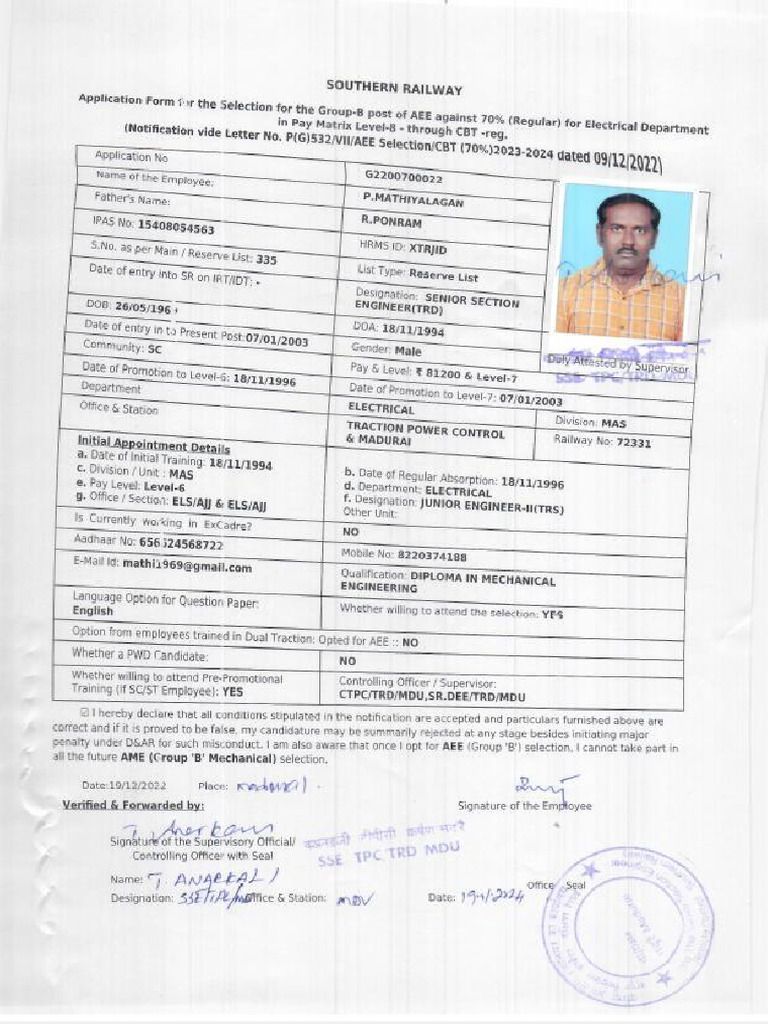 SOUTHERN RAILWAY
Application Form for the Selection for the Group-B post of AEE against 70% (Regular) for Electrical Department
in Pay Matrix Level-8 - through CBT -reg.
(Notification vide Letter No. P(G)532/VII/AEE Selection/CBT (70%)2023-2024 dated 09/12/2022)
Application No G2200700022
Name of the Employee: P.MATHIYALAGAN
Father's Name: R.PONRAM
IPAS No: 15408054563 HRMS ID: XTRJID
S.No. as per Main / Reserve List: 335 List Type: Reserve List
Date of entry into SR on IRT/IDT: - Designation: SENIOR SECTION
ENGINEER(TRD)
DOB: 26/05/196 DOA: 18/11/1994
Date of entry in to Present Post:07/01/2003 Gender: Male
Community: SC Pay & Level: ₹ 81200 & Level-7
Duly Attested by Supervisor
SSE TPC/TRD/MDU
Date of Promotion to Level-6: 18/11/1996 Date of Promotion to Level-7: 07/01/2003
Department ELECTRICAL Division: MAS
Office & Station TRACTION POWER CONTROL
& MADURAI Railway No: 72331
Initial Appointment Details
a. Date of Initial Training: 18/11/1994 b. Date of Regular Absorption: 18/11/1996
c. Division / Unit : MAS d. Department: ELECTRICAL
e. Pay Level: Level-6 f. Designation: JUNIOR ENGINEER-II(TRS)
g. Office / Section: ELS/AJJ & ELS/AJJ Other Unit:
Is Currently working in ExCadre? NO
Aadhaar No: 656 24568722 Mobile No: 8220374188
E-Mail Id: mathi1969@gmail.com Qualification: DIPLOMA IN MECHANICAL
ENGINEERING
Language Option for Question Paper:
English Whether willing to attend the selection: YES
Option from employees trained in Dual Traction: Opted for AEE :: NO
Whether a PWD Candidate: NO
Whether willing to attend Pre-Promotional
Training (If SC/ST Employee): YES Controlling Officer / Supervisor:
CTPC/TRD/MDU,SR.DEE/TRD/MDU
☑ I hereby declare that all conditions stipulated in the notification are accepted and particulars furnished above are
correct and if it is proved to be false, my candidature may be summarily rejected at any stage besides initiating major
penalty under D&AR for such misconduct. I am also aware that once I opt for AEE (Group 'B') selection, I cannot take part in
all the future AME (Group 'B' Mechanical) selection.
Date:19/12/2022 Place: madurai.
Verified & Forwarded by: Signature of the Employee
Signature of the Supervisory Official/
Controlling Officer with Seal
SSE TPC TRD MDU
Name: T. ANARKALI
Office Seal
Designation: SSE/TPC/ Office & Station: MDU Date: